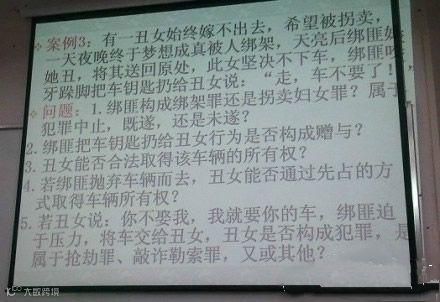 案例3：有一丑女始终嫁不出去，希望被拐卖，
一天夜晚终于梦想成真被人绑架，天亮后绑匪嫌
她丑，将其送回原处，此女坚决不下车，绑匪咬
牙跺脚把车钥匙扔给丑女说：“走，车不要了！”
问题：1. 绑匪构成绑架罪还是拐卖妇女罪？属于
犯罪中止，既遂，还是未遂？
2. 绑匪把车钥匙扔给丑女行为是否构成赠与？
3. 丑女能否合法取得该车辆的所有权？
4. 若绑匪抛弃车辆而去，丑女能否通过先占的方
式取得车辆所有权？
5. 若丑女说：你不娶我，我就要你的车，绑匪迫
于压力，将车交给丑女，丑女是否构成犯罪，是
属于抢劫罪、敲诈勒索罪，又或其他？
大数跨境